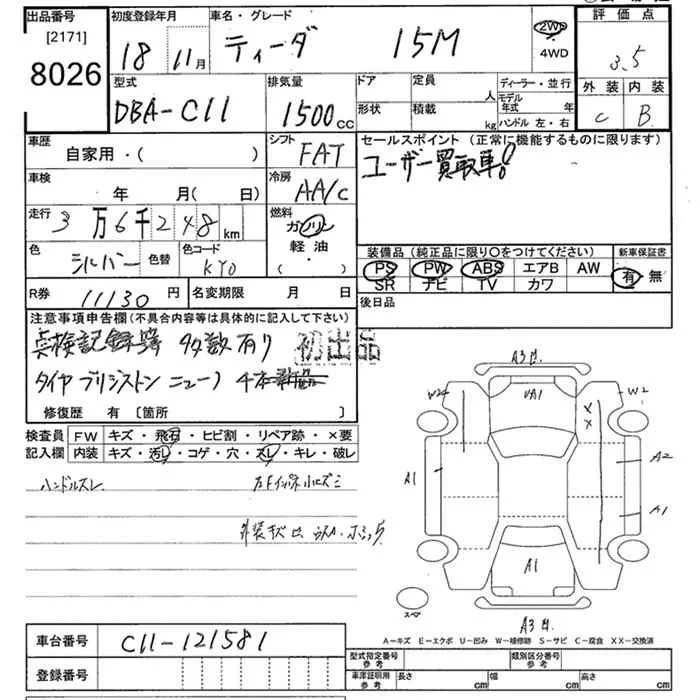 出品番号
[2171]
8026
初度登録年月
18 11月
車名・グレード
ティーダ 15M
2WD
4WD
評価点
3.5
外装 内装
C B
型式
DBA-C11
排気量
1500cc
ドア 定員
人
形状 積載
kg
ディーラー・並行
モデル年式 年
ハンドル 左・右
車歴
自家用・( )
シフト
FAT
セールスポイント(正常に機能するものに限ります)
ユーザー買取車!
車検
年 月( 日)
冷房
AA/C
走行
3万6千248km
燃料
ガソリン
軽油
( ・ )
色
シルバー
色替
色コード
KY0
装備品(純正品に限り〇をつけてください)
PS PW ABS エアB AW
SR ナビ TV カワ
新車保証書
有 無
R券 11130円
名変期限 月 日
後日品
注意事項申告欄(不具合内容等は具体的に記入して下さい)
点検記録簿 多数有り
初出品
タイヤ ブリジストン ニューノ 4本
修復歴 有 [箇所 ]
検査員記入欄
FW キズ・飛石・ヒビ割・リペア跡・×要
内装 キズ・汚レ・コゲ・穴・スレ・キレ・破レ
ハンドルスレ
A3
UA1
W2
W2
XX
A1
A2
A1
A1
スペア
A3
A-キズ E-エクボ U-凹み W-補修跡 S-サビ C-腐食 XX-交換済
車台番号
C11-121581
登録番号
型式指定番号 参考
類別区分番号 参考
車庫証明用 参考
長さ cm 幅 cm 高さ cm